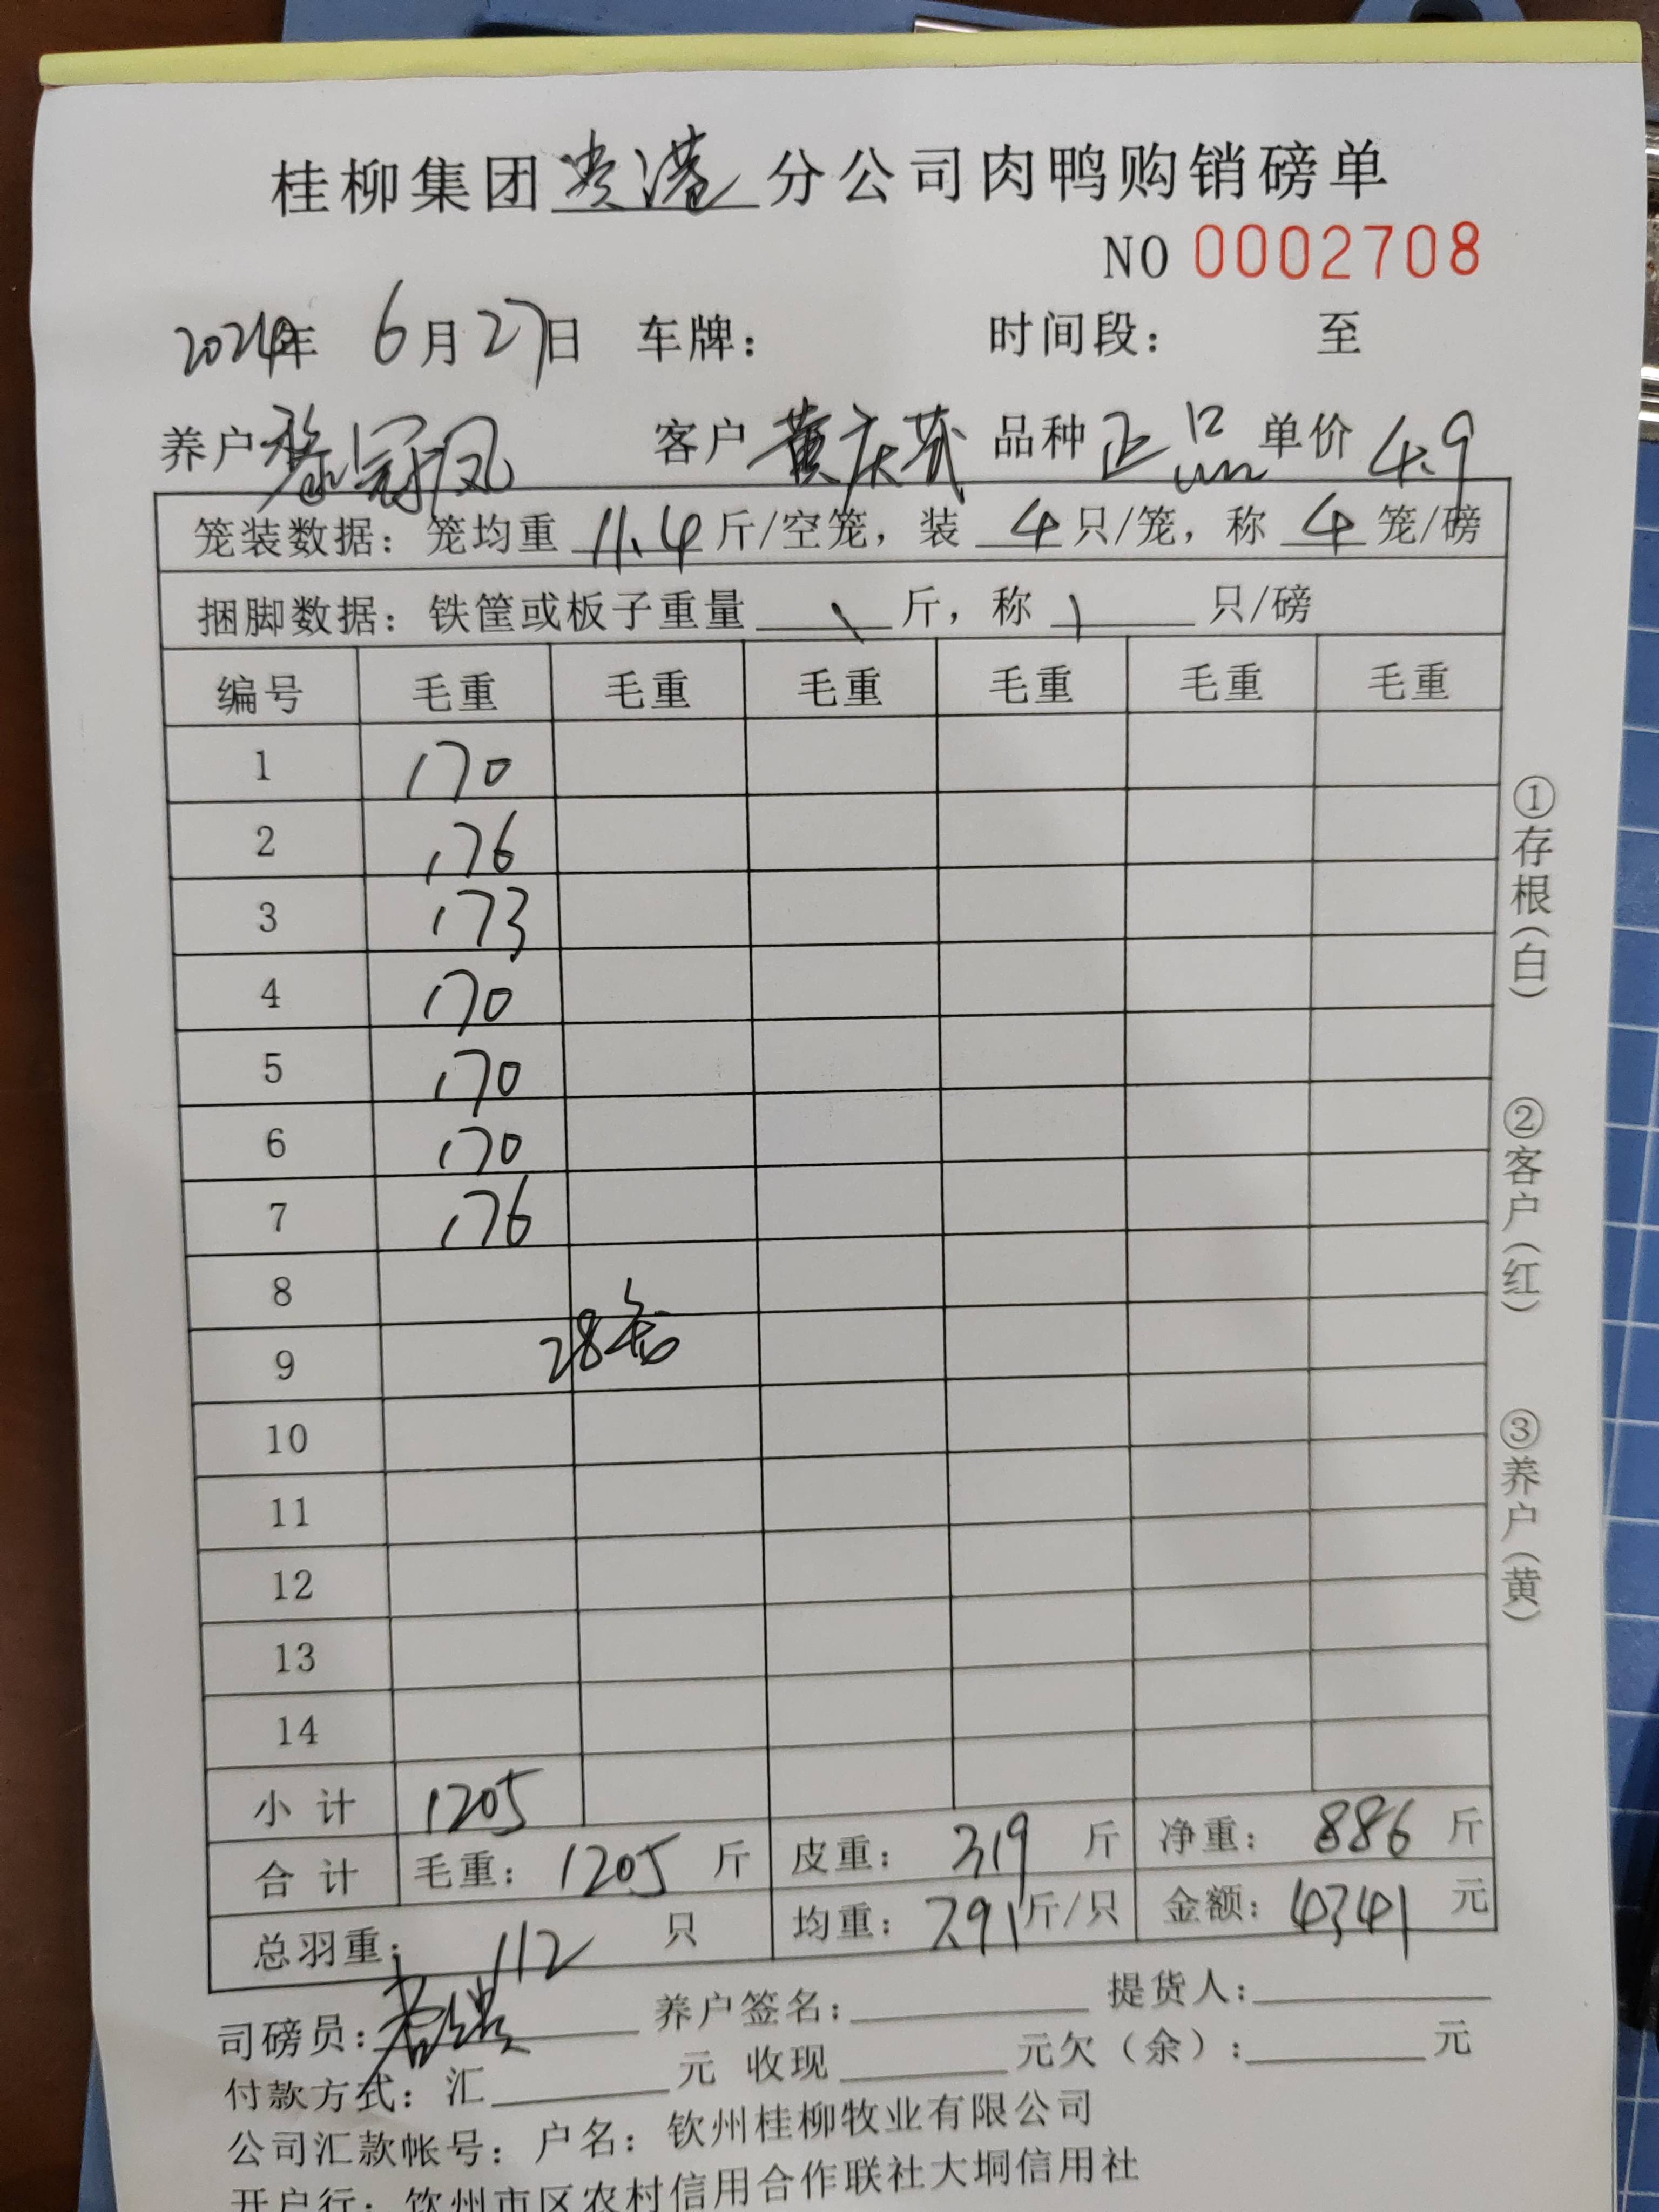 桂柳集团贵港分公司肉鸭购销磅单
NO 0002708
2024年 6月27日 车牌： 时间段： 至
养户黎冠凤 客户 黄庆茂 品种 正品 单价 4.9
笼装数据：笼均重 11.4 斤/空笼，装 4 只/笼，称 4 笼/磅
捆脚数据：铁筐或板子重量 \ 斤，称 \ 只/磅
编号 毛重 毛重 毛重 毛重 毛重 毛重
1 170
2 176
3 173
4 170
5 170
6 170
7 176
8
28
9
10
11
12
13
14
小计 1205
合计 毛重：1205 斤 皮重：319 斤 净重：886 斤
总羽重：112 只 均重：7.91斤/只 金额：4341 元
司磅员： 养户签名： 提货人：
付款方式：汇 元 收现 元欠（余）： 元
公司汇款帐号：户名：钦州桂柳牧业有限公司
开户行：钦州市区农村信用合作联社大垌信用社
①存根（白）
②客户（红）
③养户（黄）